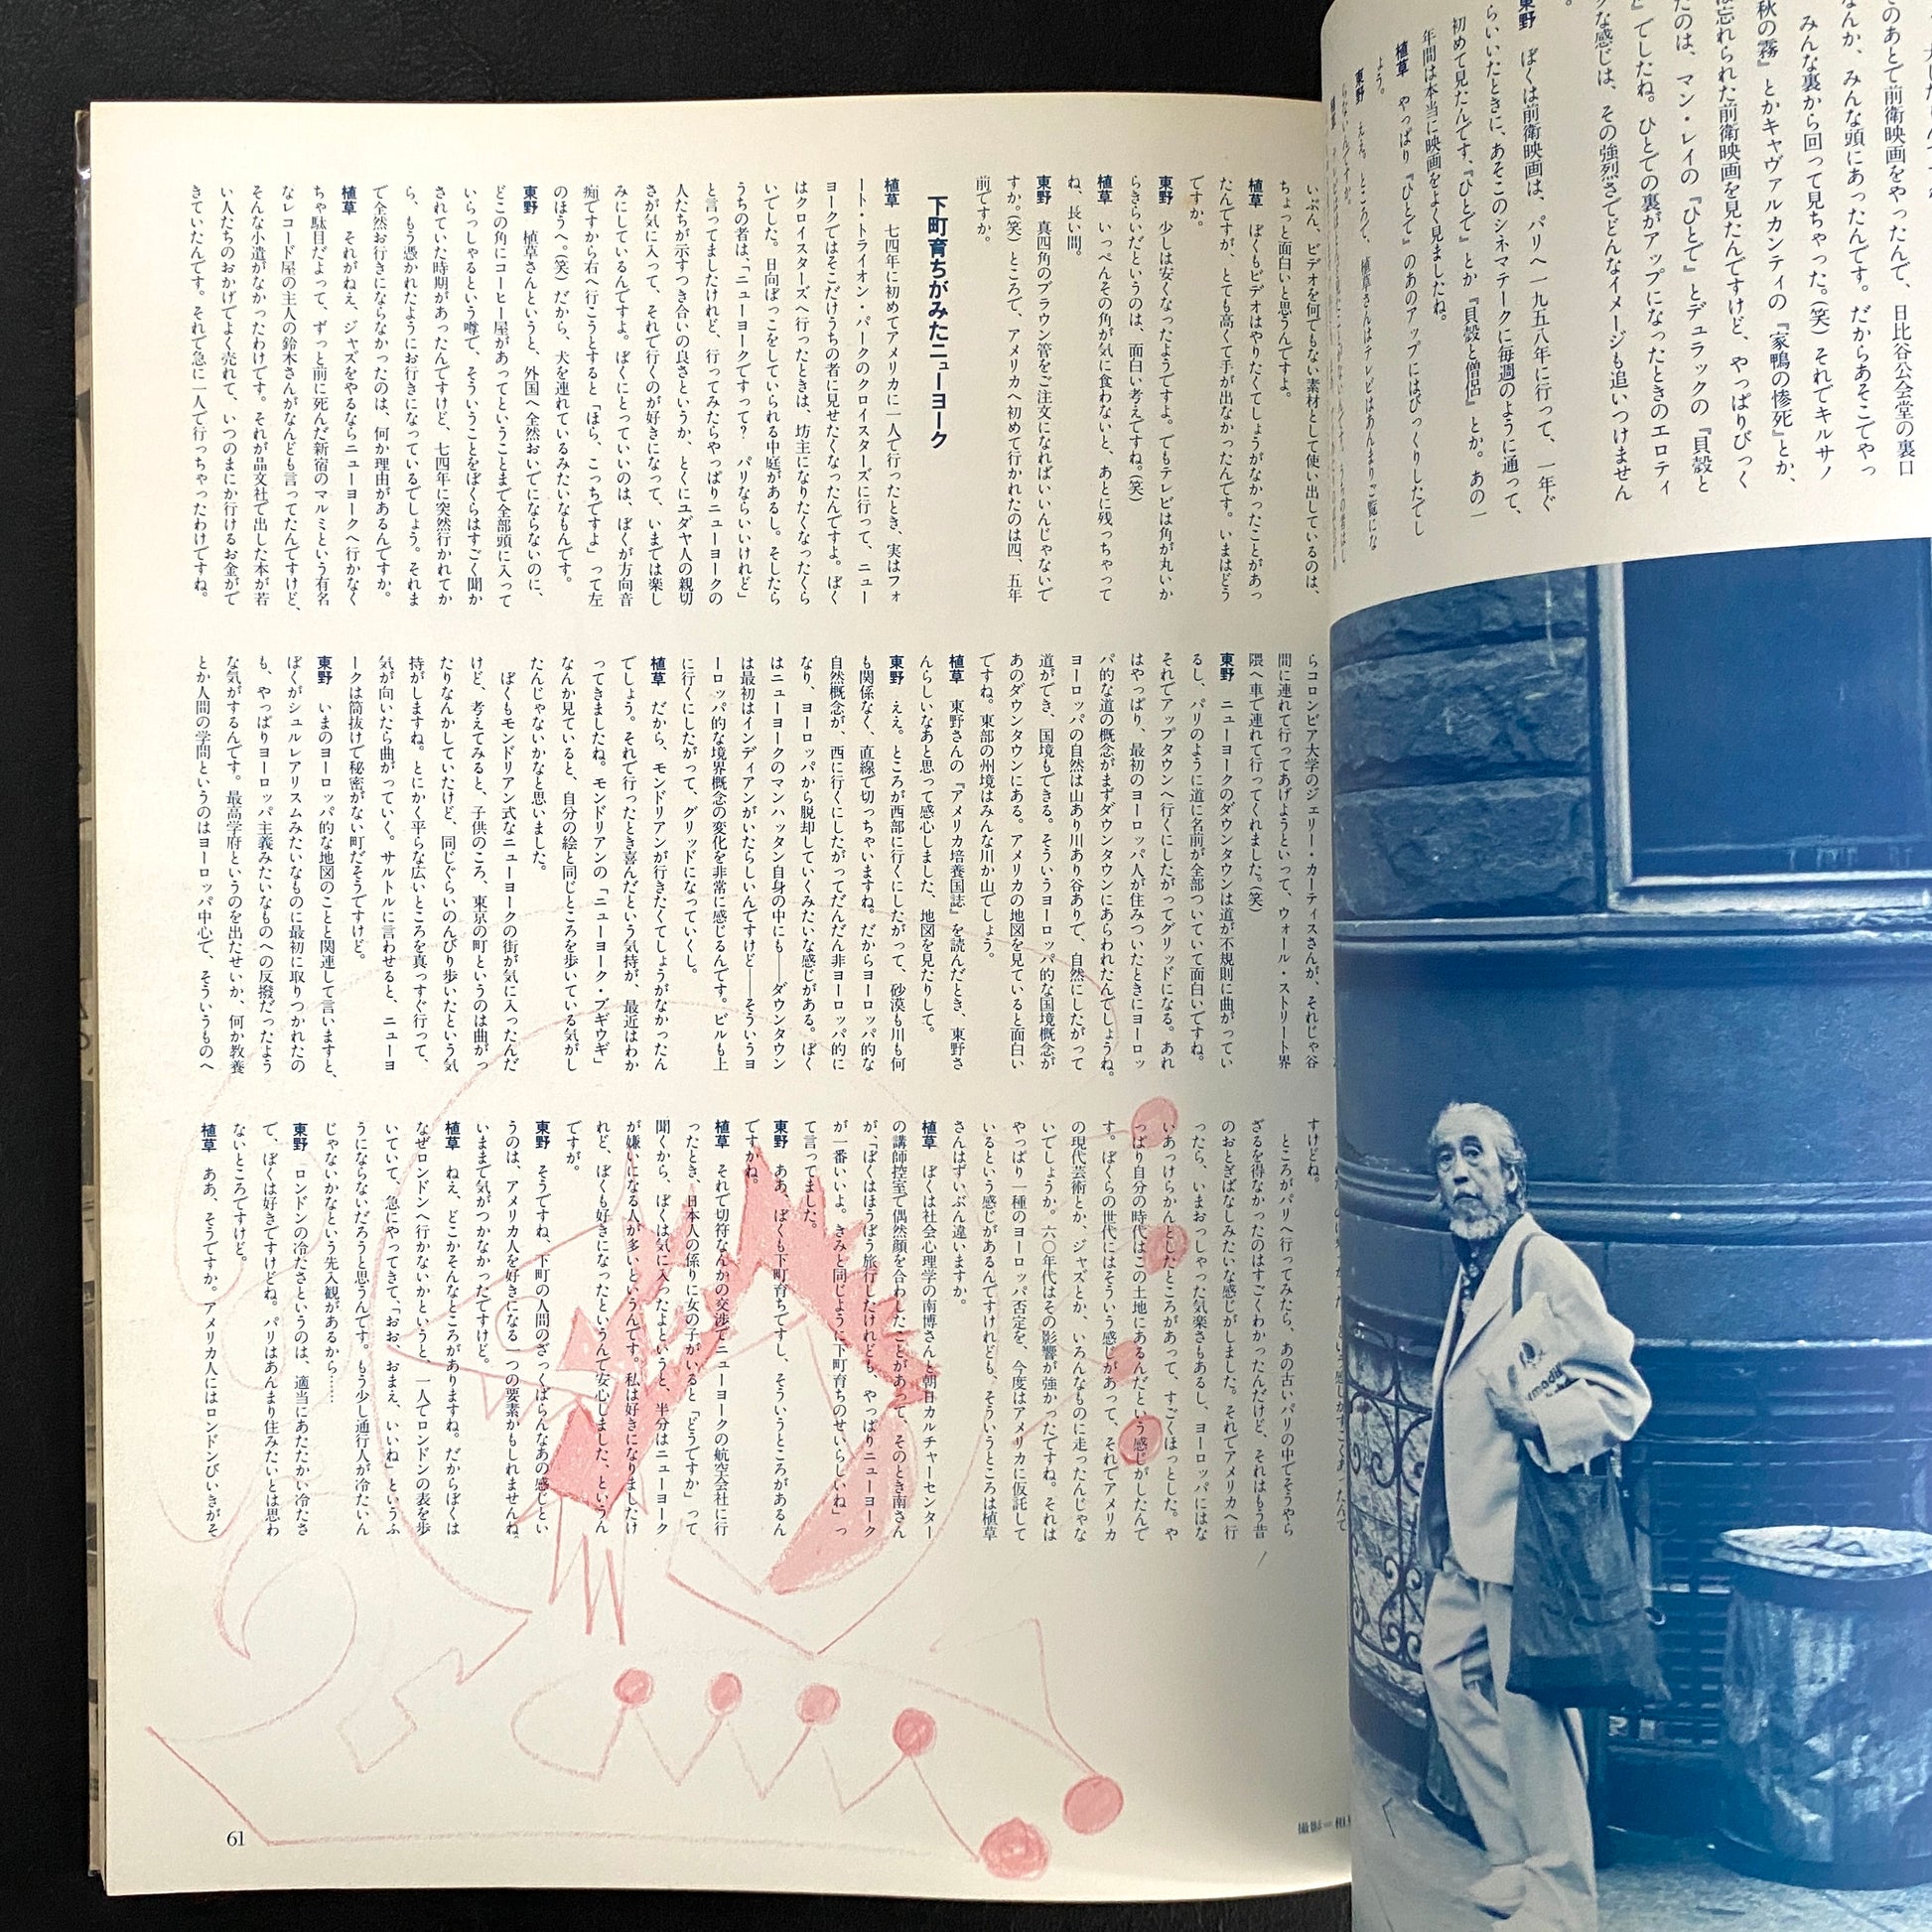 のあとで前衛映画をやったんで、日比谷公会堂の裏口
なんか、みんな頭にあったんです。だからあそこでやっ
みんな裏から回って見ちゃった。(笑)それでキルサノ
秋の霧』とかキャヴァルカンティの『家鴨の惨死』とか、
は忘れられた前衛映画を見たんですけど、やっぱりびっく
たのは、マン・レイの『ひとで』とデュラックの『貝殻と
』でしたね。ひとでの裏がアップになったときのエロティ
クな感じは、その強烈さでどんなイメージも追いつけません
東野　ぼくは前衛映画は、パリへ一九五八年に行って、一年ぐ
らいいたときに、あそこのシネマテークに毎週のように通って、
初めて見たんです、『ひとで』とか『貝殻と僧侶』とか。あの一
年間は本当に映画をよく見ましたね。
植草　やっぱり『ひとで』のあのアップにはびっくりしたでし
ょう。
東野　ええ。ところで、植草さんはテレビはあんまりご覧にな
らないんですか。
いぶん、ビデオを何でもない素材として使い出しているのは、
ちょっと面白いと思うんですよ。
植草　ぼくもビデオはやりたくてしょうがなかったことがあっ
たんですが、とても高くて手が出なかったんです。いまはどう
ですか。
東野　少しは安くなったようですよ。でもテレビは角が丸いか
らきらいだというのは、面白い考えですね。(笑)
植草　いっぺんその角が気に食わないと、あとに残っちゃって
ね、長い間。
東野　真四角のブラウン管をご注文になればいいんじゃないで
すか。(笑)ところで、アメリカへ初めて行かれたのは四、五年
前ですか。
下町育ちがみたニューヨーク
植草　七四年に初めてアメリカに一人で行ったとき、実はフォ
ート・トライオン・パークのクロイスターズに行って、ニュー
ヨークではそこだけうちの者に見せたくなったんですよ。ぼく
はクロイスターズへ行ったときは、坊主になりたくなったくら
いでした。日向ぼっこをしていられる中庭があるし。そしたら
うちの者は、「ニューヨークですって？　パリならいいけれど」
と言ってましたけれど、行ってみたらやっぱりニューヨークの
人たちが示すつき合いの良さというか、とくにユダヤ人の親切
さが気に入って、それで行くのが好きになって、いまでは楽し
みにしているんですよ。ぼくにとっていいのは、ぼくが方向音
痴ですから右へ行こうとすると「ほら、こっちですよ」って左
のほうへ。(笑)だから、犬を連れているみたいなもんです。
東野　植草さんというと、外国へ全然おいでにならないのに、
どこの角にコーヒー屋があってということまで全部頭に入って
いらっしゃるという噂で、そういうことをぼくらはすごく聞か
されていた時期があったんですけど、七四年に突然行かれてか
ら、もう憑かれたようにお行きになっているでしょう。それま
で全然お行きにならなかったのは、何か理由があるんですか。
植草　それがねえ、ジャズをやるならニューヨークへ行かなく
ちゃ駄目だよって、ずっと前に死んだ新宿のマルミという有名
なレコード屋の主人の鈴木さんがなんども言ってたんですけど、
そんな小遣がなかったわけです。それが晶文社で出した本が若
い人たちのおかげでよく売れて、いつのまにか行けるお金がで
きていたんです。それで急に一人で行っちゃったわけですね。
らコロンビア大学のジェリー・カーティスさんが、それじゃ谷
間に連れて行ってあげようといって、ウォール・ストリート界
隈へ車で連れて行ってくれました。(笑)
東野　ニューヨークのダウンタウンは道が不規則に曲がってい
るし、パリのように道に名前が全部ついていて面白いですね。
それでアップタウンへ行くにしたがってグリッドになる。あれ
はやっぱり、最初のヨーロッパ人が住みついたときにヨーロッ
パ的な道の概念がまずダウンタウンにあらわれたんでしょうね。
ヨーロッパの自然は山あり川あり谷ありで、自然にしたがって
道ができ、国境もできる。そういうヨーロッパ的な国境概念が
あのダウンタウンにある。アメリカの地図を見ていると面白い
ですね。東部の州境はみんな川か山でしょう。
植草　東野さんの『アメリカ培養国誌』を読んだとき、東野さ
んらしいなあと思って感心しました、地図を見たりして。
東野　ええ。ところが西部に行くにしたがって、砂漠も川も何
も関係なく、直線で切っちゃいますね。だからヨーロッパ的な
自然概念が、西に行くにしたがってだんだん非ヨーロッパ的に
なり、ヨーロッパから脱却していくみたいな感じがある。ぼく
はニューヨークのマンハッタン自身の中にも――ダウンタウン
は最初はインディアンがいたらしいんですけど――そういうヨ
ーロッパ的な境界概念の変化を非常に感じるんです。ビルも上
に行くにしたがって、グリッドになっていくし。
植草　だから、モンドリアンが行きたくてしょうがなかったん
でしょう。それで行ったとき喜んだという気持が、最近はわか
ってきましたね。モンドリアンの「ニューヨーク・ブギウギ」
なんか見ていると、自分の絵と同じところを歩いている気がし
たんじゃないかなと思いました。
ぼくもモンドリアン式なニューヨークの街が気に入ったんだ
けど、考えてみると、子供のころ、東京の町というのは曲がっ
たりなんかしていたけど、同じぐらいのんびり歩いたという気
持がしますね。とにかく平らな広いところを真っすぐ行って、
気が向いたら曲がっていく。サルトルに言わせると、ニューヨ
ークは筒抜けで秘密がない町だそうですけど。
東野　いまのヨーロッパ的な地図のことと関連して言いますと、
ぼくがシュルレアリスムみたいなものに最初に取りつかれたの
も、やっぱりヨーロッパ主義みたいなものへの反撥だったよう
な気がするんです。最高学府というのを出たせいか、何か教養
とか人間の学問というのはヨーロッパ中心で、そういうものへ
すけどね。
ところがパリへ行ってみたら、あの古いパリの中でそうやら
ざるを得なかったのはすごくわかったんだけど、それはもう昔
のおとぎばなしみたいな感じがしました。それでアメリカへ行
ったら、いまおっしゃった気楽さもあるし、ヨーロッパにはな
いあっけらかんとしたところがあって、すごくほっとした。や
っぱり自分の時代はこの土地にあるんだという感じがしたんで
す。ぼくらの世代にはそういう感じがあって、それでアメリカ
の現代芸術とか、ジャズとか、いろんなものに走ったんじゃな
いでしょうか。六〇年代はその影響が強かったですね。それは
やっぱり一種のヨーロッパ否定を、今度はアメリカに仮託して
いるという感じがあるんですけれども、そういうところは植草
さんはずいぶん違いますか。
植草　ぼくは社会心理学の南博さんと朝日カルチャーセンター
の講師控室で偶然顔を合わしたことがあって、そのとき南さん
が、「ぼくはほうぼう旅行したけれども、やっぱりニューヨーク
が一番いいよ。きみと同じように下町育ちのせいらしいね」っ
て言ってました。
東野　ああ、ぼくも下町育ちですし、そういうところがあるん
ですかね。
植草　それで切符なんかの交渉でニューヨークの航空会社に行
ったとき、日本人の係りに女の子がいると「どうですか」って
聞くから、ぼくは気に入ったよというと、半分はニューヨーク
が嫌いになる人が多いというんです。私は好きになりましたけ
れど、ぼくも好きになったというんで安心しました、というん
ですが。
東野　そうですね、下町の人間のざっくばらんなあの感じとい
うのは、アメリカ人を好きになる一つの要素かもしれませんね。
いままで気がつかなかったですけど。
植草　ねえ、どこかそんなところがありますね。だからぼくは
なぜロンドンへ行かないかというと、一人でロンドンの表を歩
いていて、急にやってきて、「おお、おまえ、いいね」というふ
うにならないだろうと思うんです。もう少し通行人が冷たいん
じゃないかなという先入観があるから……
東野　ロンドンの冷たさというのは、適当にあたたかい冷たさ
で、ぼくは好きですけどね。パリはあんまり住みたいとは思わ
ないところですけど。
植草　ああ、そうですか。アメリカ人にはロンドンびいきがそ
61